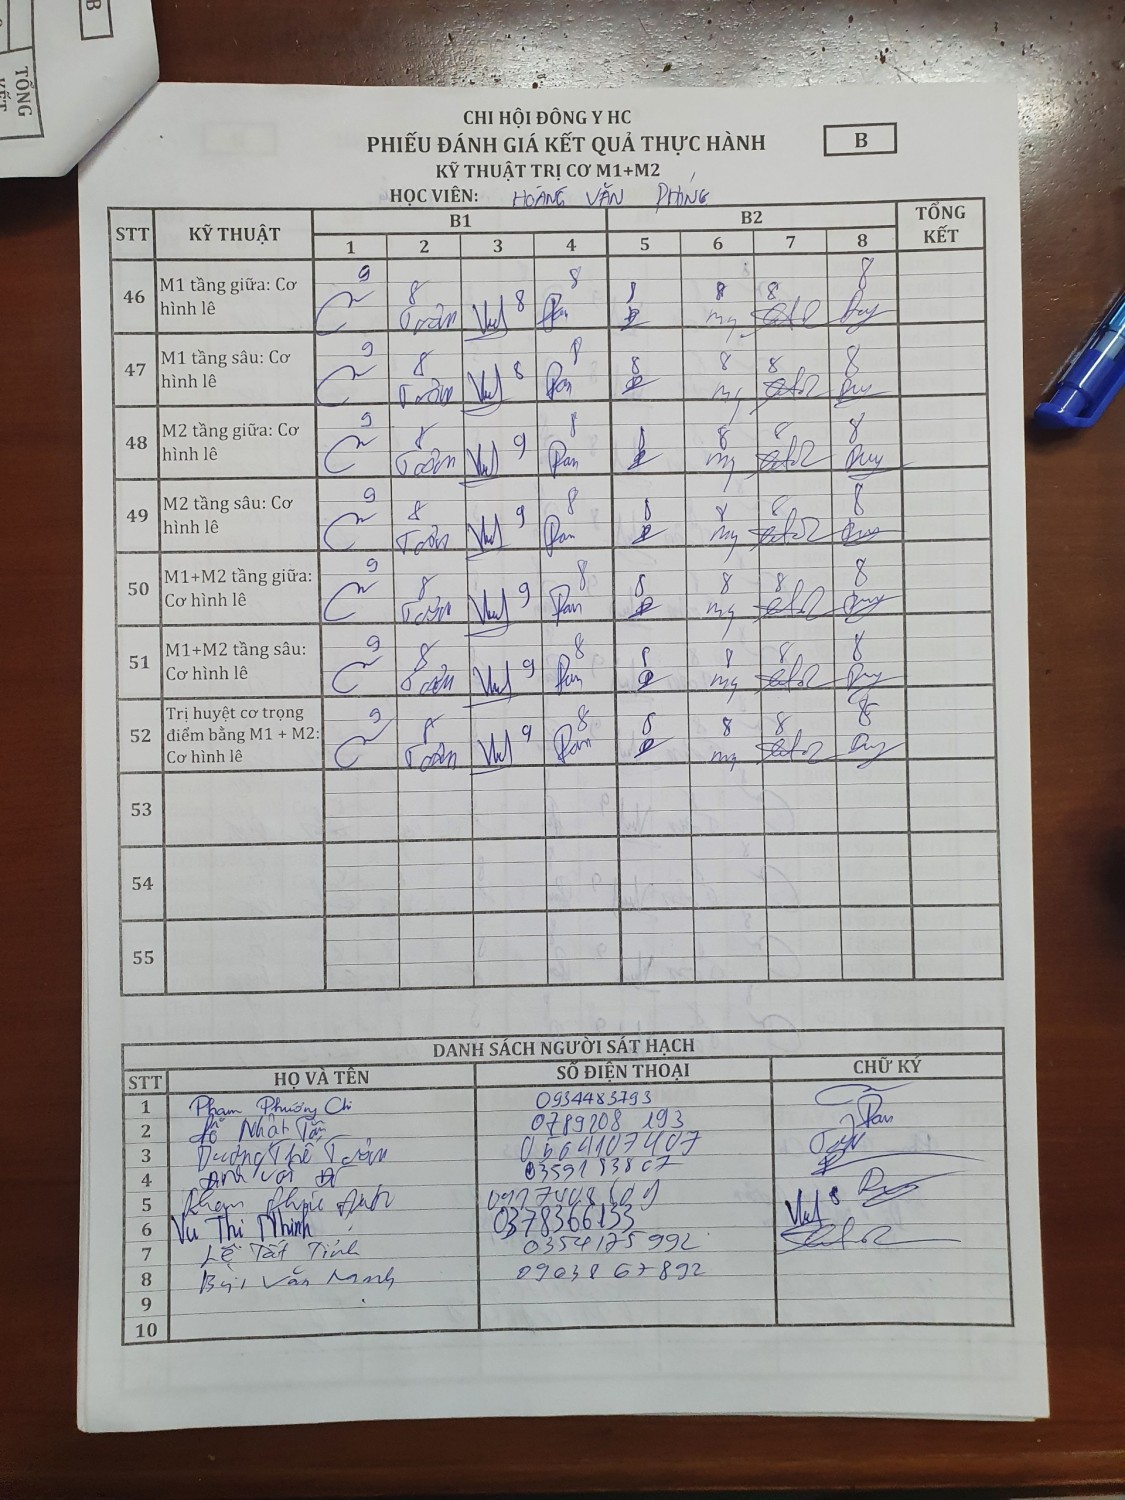 B
TỔNG
KẾT
CHI HỘI ĐÔNG Y HC
PHIẾU ĐÁNH GIÁ KẾT QUẢ THỰC HÀNH
B
KỸ THUẬT TRỊ CƠ M1+M2
HỌC VIÊN: HOÀNG VĂN PHÓNG
STT KỸ THUẬT B1 B2 TỔNG KẾT
1 2 3 4 5 6 7 8
46 M1 tầng giữa: Cơ hình lê 9 8 8 8 8 8 8 8
Toản Pan Duy
47 M1 tầng sâu: Cơ hình lê 9 8 8 8 8 8 8 8
Toản Pan Duy
48 M2 tầng giữa: Cơ hình lê 9 8 9 8 8 8 8 8
Toản Pan Duy
49 M2 tầng sâu: Cơ hình lê 9 8 9 8 8 8 8 8
Toản Pan Duy
50 M1+M2 tầng giữa: Cơ hình lê 9 8 9 8 8 8 8 8
Toản Pan Duy
51 M1+M2 tầng sâu: Cơ hình lê 9 8 9 8 8 8 8 8
Toản Pan Duy
52 Trị huyệt cơ trọng điểm bằng M1 + M2: Cơ hình lê 9 8 9 8 8 8 8 8
Toản Pan Duy
53
54
55
DANH SÁCH NGƯỜI SÁT HẠCH
STT HỌ VÀ TÊN SỐ ĐIỆN THOẠI CHỮ KÝ
1 Phạm Phương Chi 0934483793
2 Nhật Tân 0789208 193 Pan
3 Dương Thế Toản
4
5 Phạm
6 Vũ Thị Nhinh 0378366133
7 Lê Tất Tính 0354175992
8 Bùi Văn Mạnh 0963867892
9
10